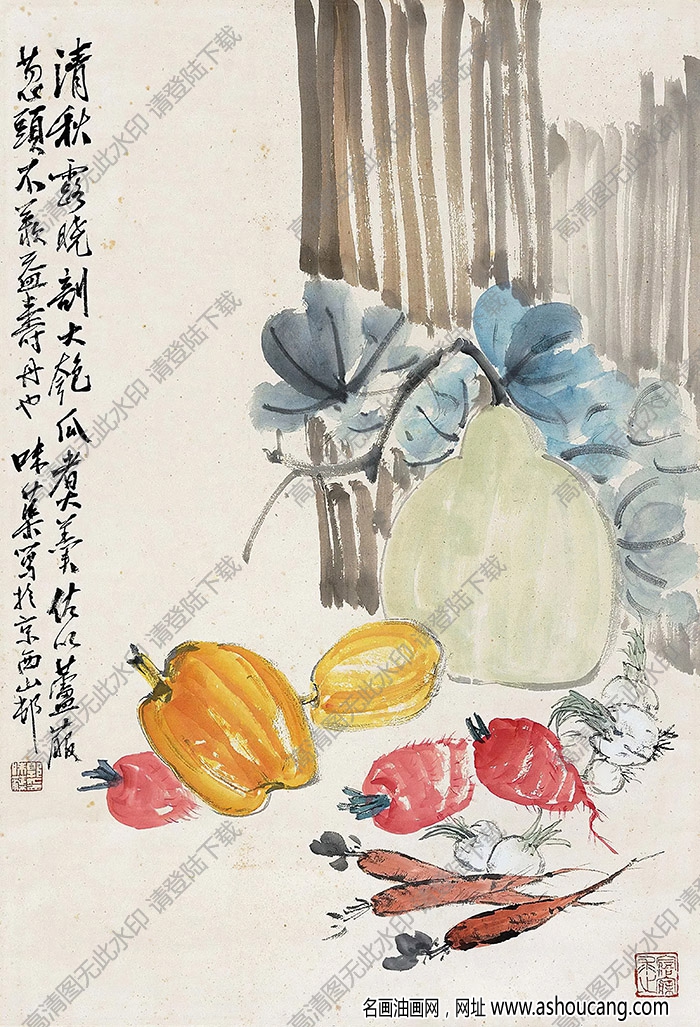 清秋露曉剖大匏瓜煮羹佐以蘆菔
蔥頭不羨益壽丹也 味蕖寫於京西山邨
高清图无此水印 请登陆下载
名画油画网，网址 www.ashoucang.com